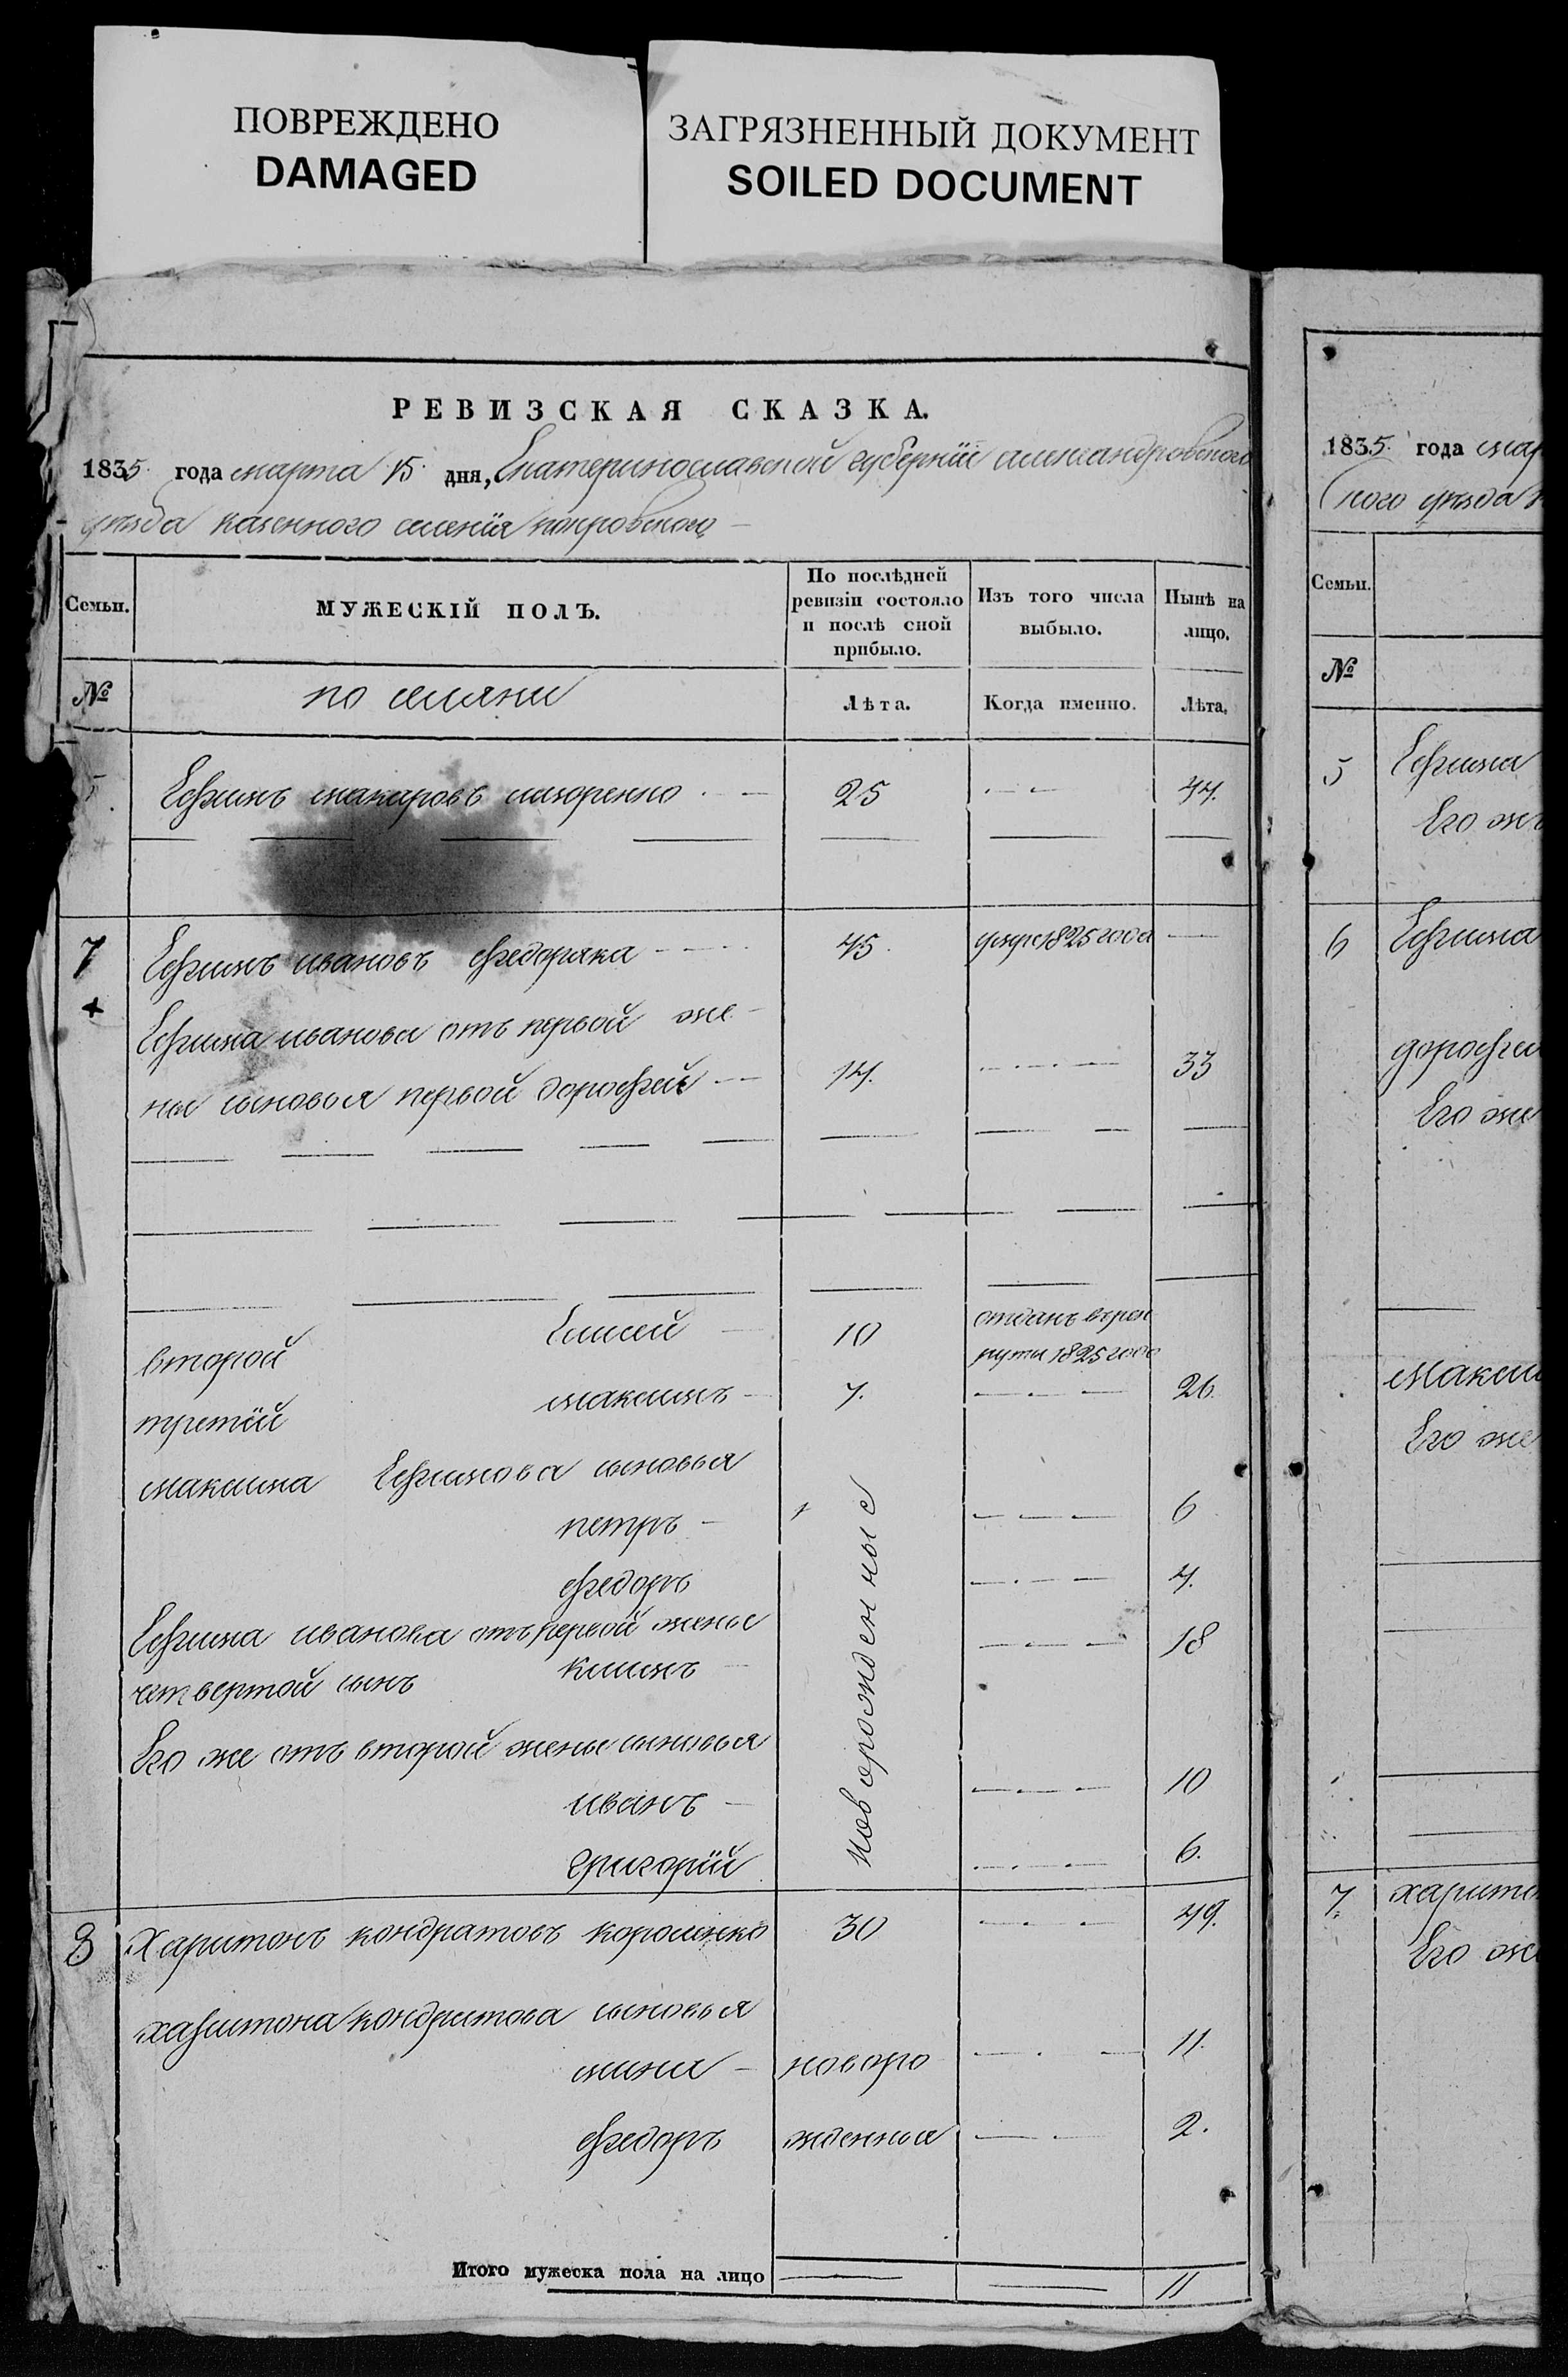 ПОВРЕЖДЕНО
DAMAGED
ЗАГРЯЗНЕННЫЙ ДОКУМЕНТ
SOILED DOCUMENT
РЕВИЗСКАЯ СКАЗКА.
1835. года марта 15 дня, Екатеринославской губернїи александровского
уѣзда казенного селенїя покровского
Семьи.
МУЖЕСКІЙ ПОЛЪ.
По послѣдней ревизіи состояло и послѣ оной прибыло.
Изъ того числа выбыло.
Нынѣ на лицо.
№
Лѣта.
Когда именно.
Лѣта.
Ефимъ макаровъ 25 44.
7 Ефимъ ивановъ федоряка 45. 1825 года
Ефима иванова отъ первой же
ны сыновья первой дорофей 14. 33
второй Елисей 10 отданъ въ рек
руты 1825 года
третїй максимъ 7. 26
максима Ефимова сыновья
петръ 6
федоръ 4.
новорожденные
Ефима иванова отъ первой жены
четвертой сынъ климъ 18
Его же отъ второй жены сыновья
иванъ 10
григорїй 6.
8 Харитонъ кондратовъ короленко 30 49.
харитона кондратова сыновья
мина новоро 11.
федоръ жденныя 2.
Итого мужеска пола на лицо 11
1835. года мар
ного уѣзда
Семьи.
№
5 Ефима
Его же
6 Ефима
дорофея
Его же
максим
Его же
7. харито
Его же